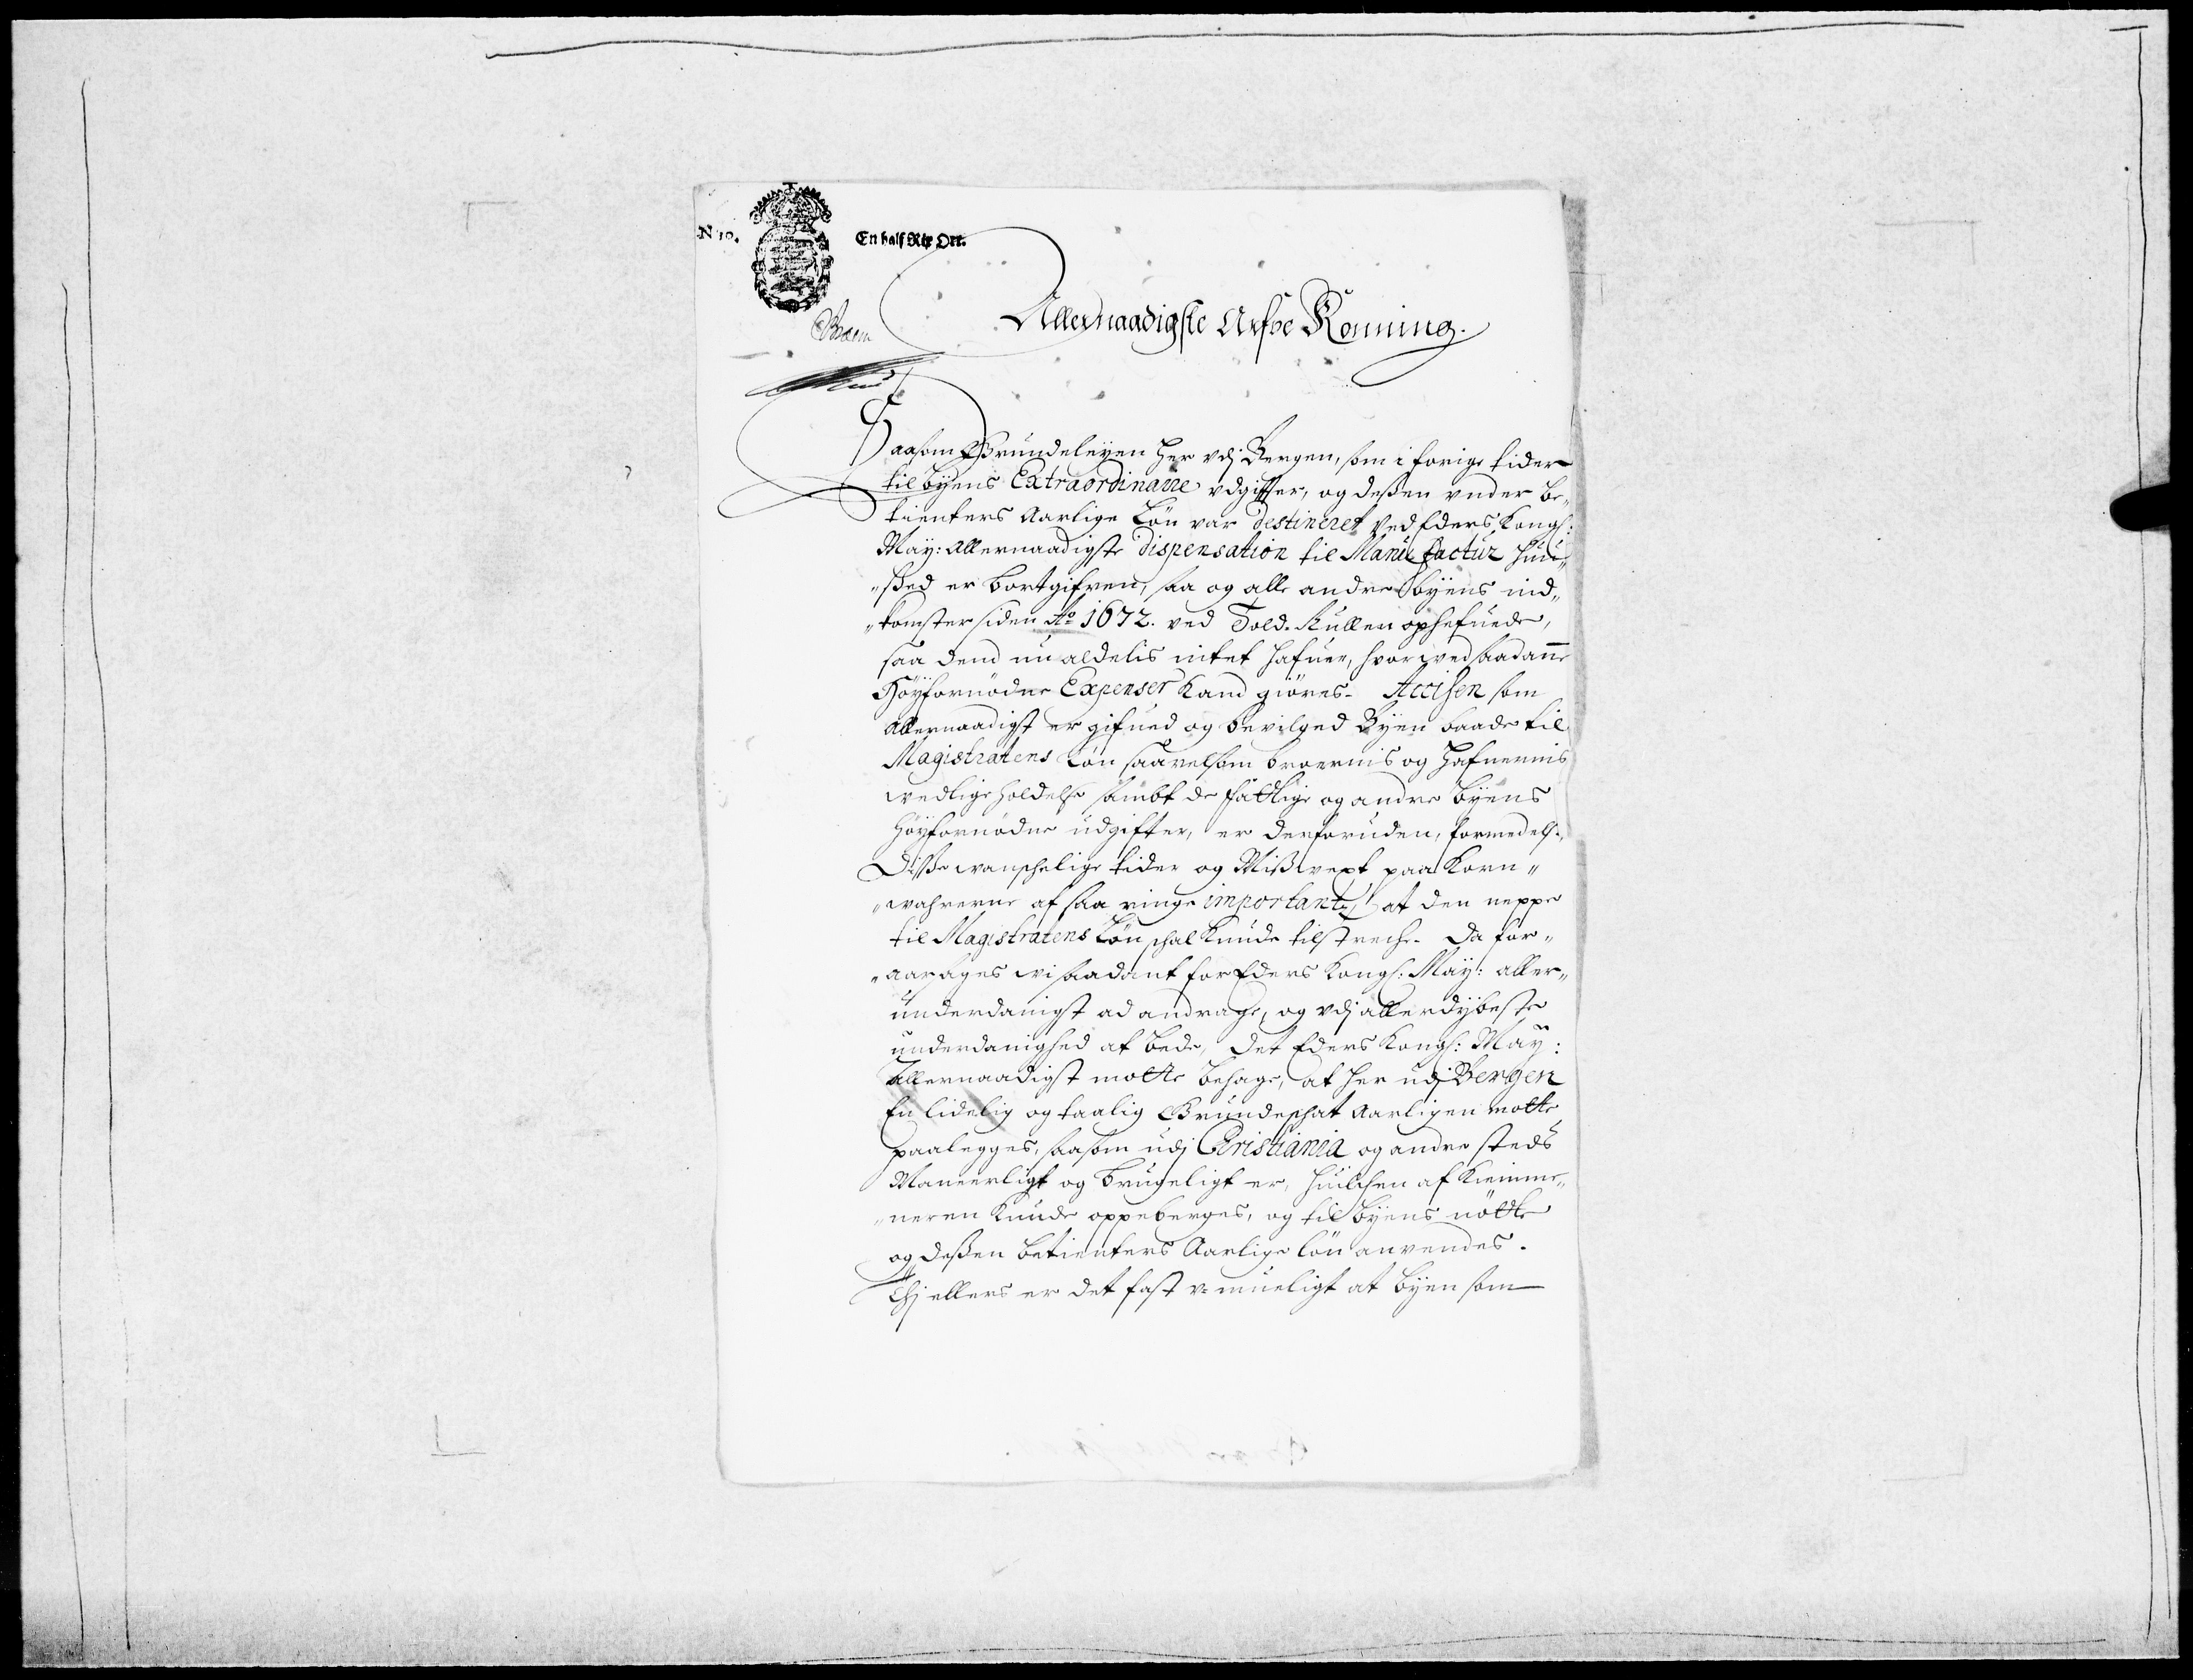 N 10.
En half Rix Ort.
Allernaadigste Arfve Konning.
Saasom Grundeleyen her udj Bergen, som i forige tider
til byens Extraordinarie vdgifter, og deßen vnder be„
tienters Aarlige Løn var destineret ved Eders Kongl:
May: Allernaadigste Dispensation til Manufactur Huu„
„ßed er bortgifven, saa og alle andre byens ind„
„komster siden Ao 1672. ved Told-Rullen ophefuede,
saa dend nu aldelis intet hafuer, hvorved saadanne
Høyfornødne Expenser kand giøres. Accisen som
Allernaadigst er gifued og bevilged Byen baade til
Magistratens Løn saavelsom broernis og Hafnernis
vedligeholdelse sambt de fattige og andre byens
høyfornødne udgifter, er desforuden, formedelst
Diße vanschelige tider og Mißvext paa Korn„
„wahrerne af saa ringe importantz, at den neppe
til Magistratens Løn schal kunde tilstreche. Da for„
„aarsages wi saadant for Eders Kongl: May: aller„
underdanigst ad andrage, og vdj allerdybeste
underdanighed at bede, det Eders Kongl: May:
Allernaadigst motte behage, at her udj Bergen
En lidelig og taalig Grundeschat Aarligen motte
paalegges, saasom udj Christiania og andre steds
Maneerligt og brugeligt er, huilchen af Kiemme„
„neren kunde oppeberges, og til byens nøtte
og deßen betienters Aarlige løn anvendes.
Thj ellers er det fast v-mueligt at byen som